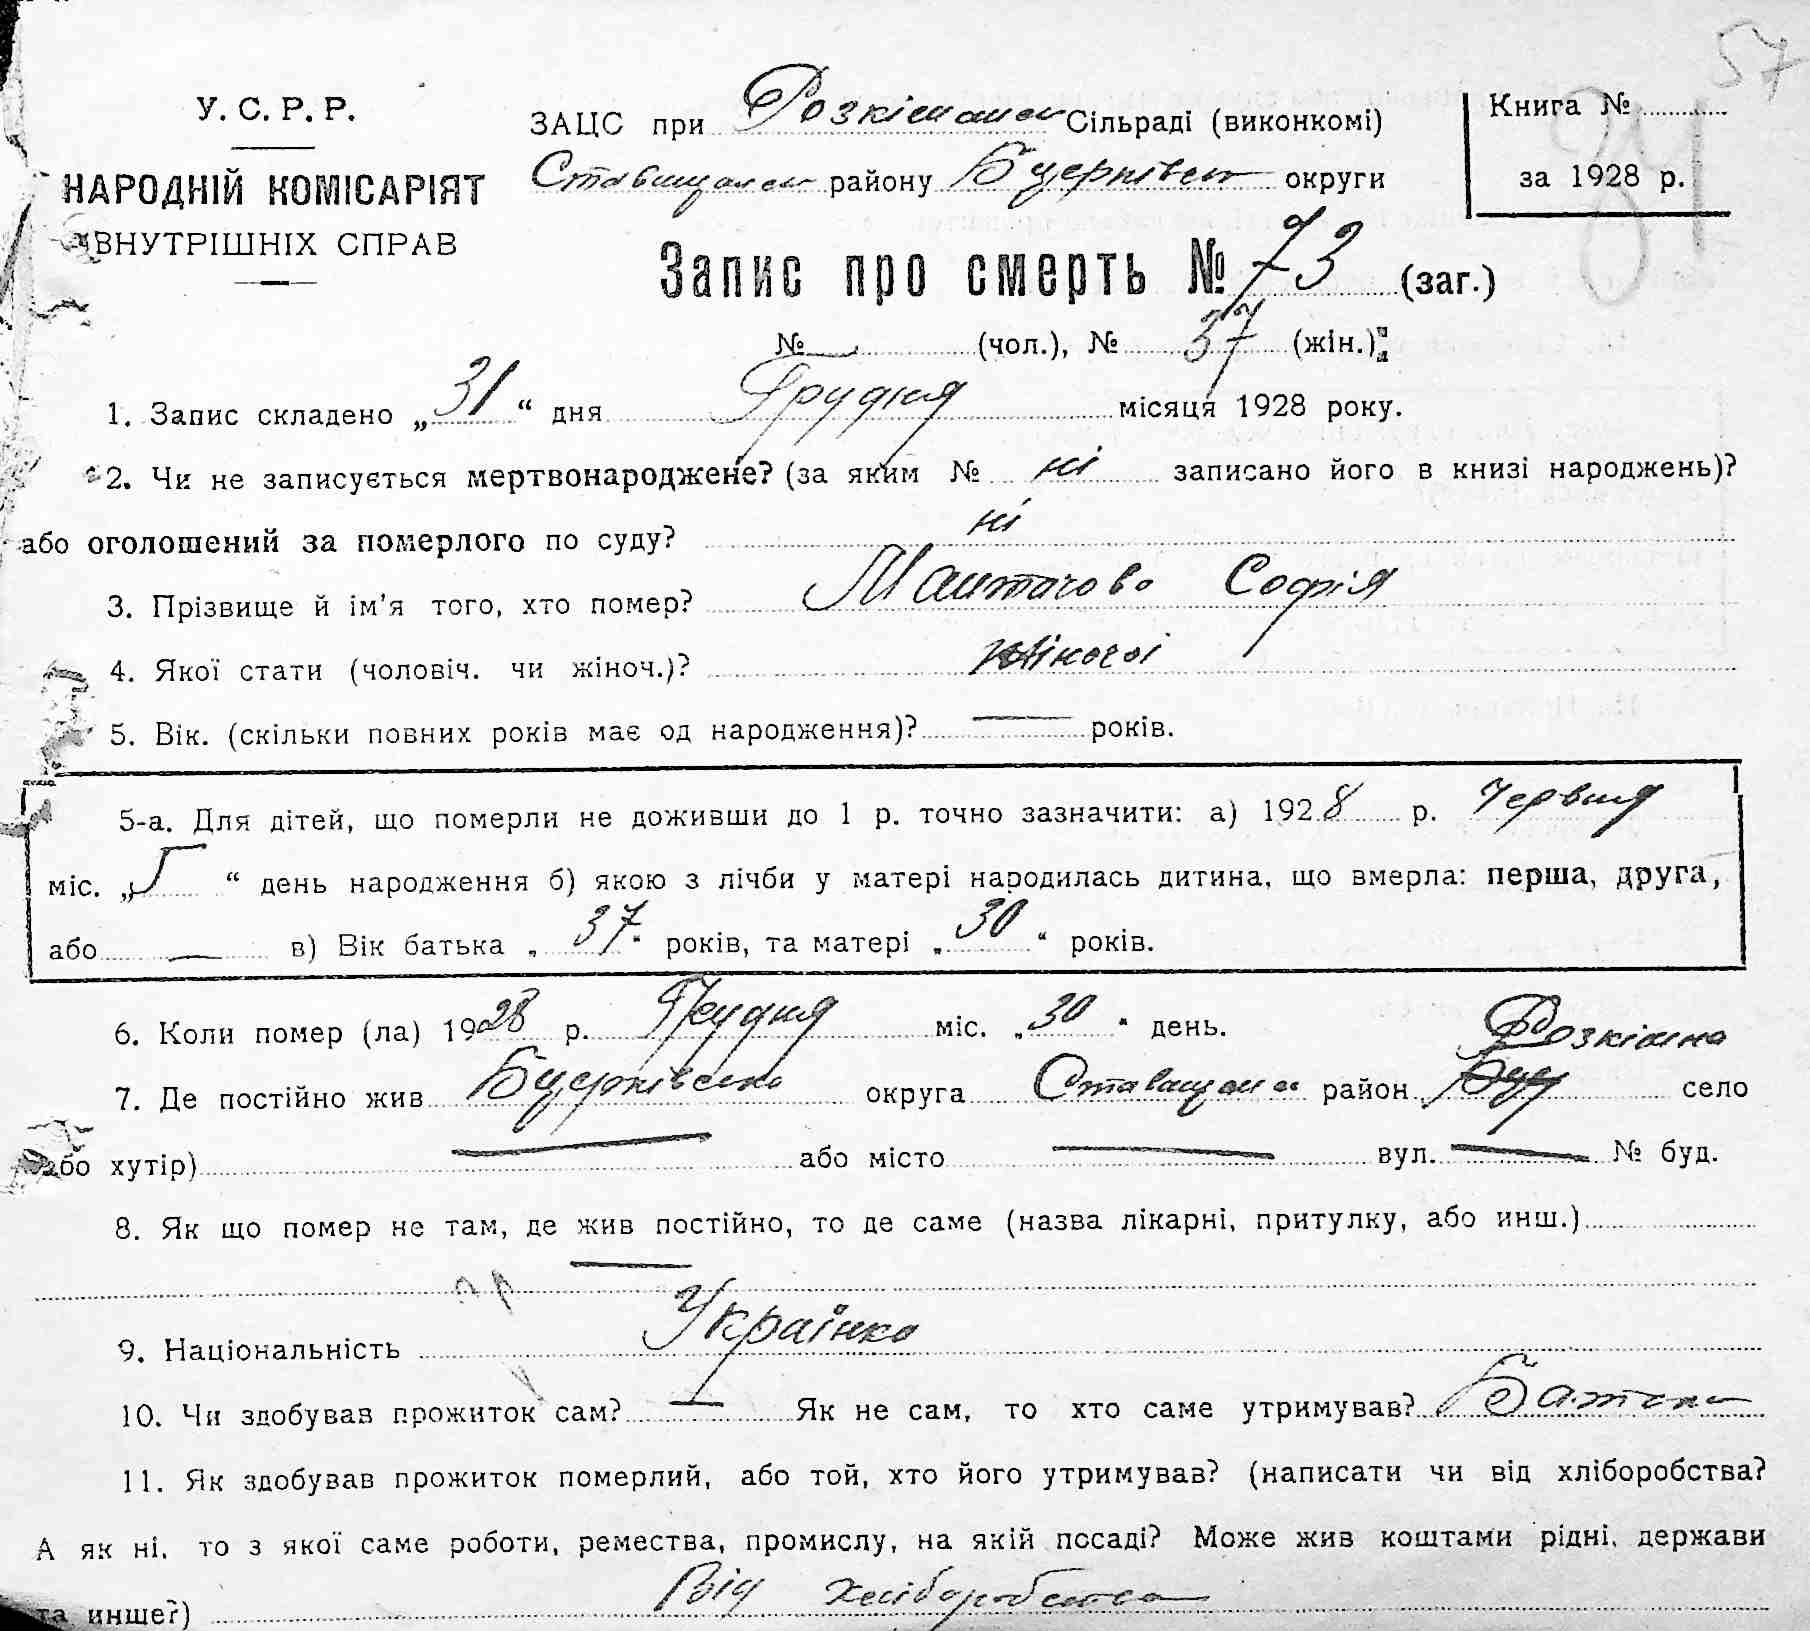 57
У. С. Р. Р.
НАРОДНІЙ КОМІСАРІЯТ
ВНУТРІШНІХ СПРАВ
ЗАЦС при Розкішнен Сільраді (виконкомі)
Ставищанськ району Б Церківськ округи
Книга №
за 1928 р.
Запис про смерть № 73 (заг.)
№ — (чол.), № 37 (жін.)
1. Запис складено „31“ дня Грудня місяця 1928 року.
2. Чи не записується мертвонароджене? (за яким № ні записано його в книзі народжень)?
або оголошений за померлого по суду? ні
3. Прізвище й ім’я того, хто помер? Софія
4. Якої стати (чоловіч. чи жіноч.)? жіночої
5. Вік. (скільки повних років має од народження)? — років.
5-а. Для дітей, що померли не доживши до 1 р. точно зазначити: а) 1928 р. Червня
міс. „5“ день народження б) якою з лічби у матері народилась дитина, що вмерла: перша, друга,
або — в) Вік батька „37“ років, та матері „30“ років.
6. Коли помер (ла) 1928 р. Грудня міс. „30“ день.
Розкішна
7. Де постійно жив Б Церківська округа Ставищанськ район село
або хутір) — або місто — вул. — № буд.
8. Як що помер не там, де жив постійно, то де саме (назва лікарні, притулку, або инш.)
—
9. Національність Українка
10. Чи здобував прожиток сам? — Як не сам, то хто саме утримував? Батько
11. Як здобував прожиток померлий, або той, хто його утримував? (написати чи від хліборобства?
А як ні, то з якої саме роботи, ремества, промислу, на якій посаді? Може жив коштами рідні, держави
та инше?) Від хліборобства